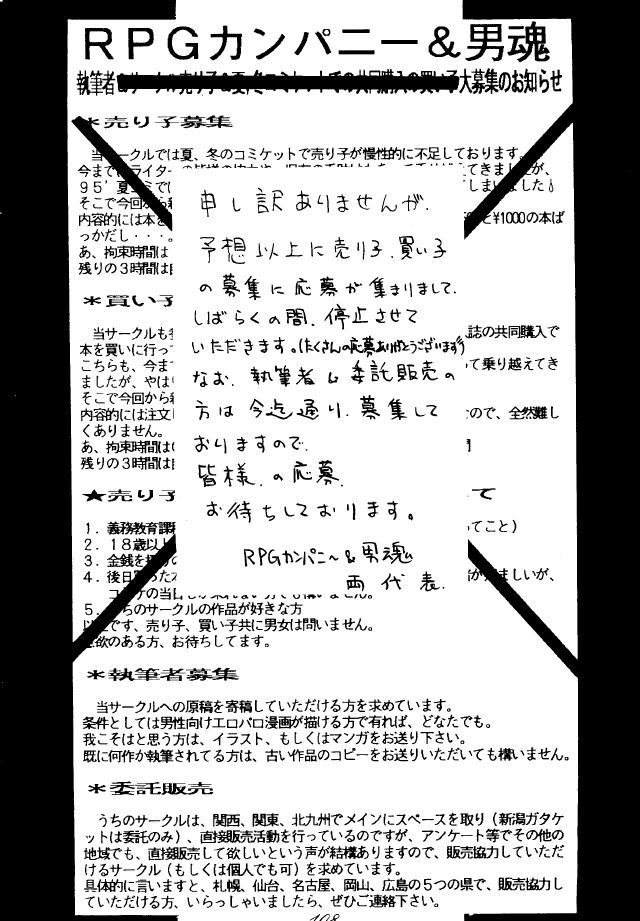 RPGカンパニー&男魂
執筆者
大募集のお知らせ
*売り子募集
当サークルでは夏、冬のコミケットで売り子が慢性的に不足しております。
今まで
95'夏
そこで今回から
と¥1000の本ば
内容的には本を
っかだし・・・。
あ、拘束時間は
残りの3時間は
*買い子
当サークルも
誌の共同購入で
本を買いに行っ
こちらも、今ま
て乗り越えてき
ましたが、やは
そこで今回から
内容的には注文
ので、全然難し
くありません。
あ、拘束時間は
残りの3時間は
★売り子
いて
1.義務教育課
ってこと)
2.18歳以
3.金銭を
4.後日
ましいが、
5.うちのサークルの作品が好きな方
以上です、売り子、買い子共に男女は問いません。
意欲のある方、お待ちしてます。
申し訳ありませんが、
予想以上に売り子、買い子
の募集に応募が集まりまして、
しばらくの間、停止させて
いただきます。(たくさんの応募ありがとうございます)
なお、執筆者&委託販売の
方は今迄通り、募集して
おりますので、
皆様、の応募、
お待ちしております。
RPGカンパニー&男魂
両代表.
*執筆者募集
当サークルへの原稿を寄稿していただける方を求めています。
条件としては男性向けエロパロ漫画が描ける方で有れば、どなたでも。
我こそはと思う方は、イラスト、もしくはマンガをお送り下さい。
既に何作か執筆されてる方は、古い作品のコピーをお送りいただいても構いません。
*委託販売
うちのサークルは、関西、関東、北九州でメインにスペースを取り(新潟ガタケ
ットは委託のみ)、直接販売活動を行っているのですが、アンケート等でその他の
地域でも、直接販売して欲しいという声が結構ありますので、販売協力していただ
けるサークル(もしくは個人でも可)を求めています。
具体的に言いますと、札幌、仙台、名古屋、岡山、広島の5つの県で、販売協力し
ていただける方、いらっしゃいましたら、ぜひご連絡下さい。
108